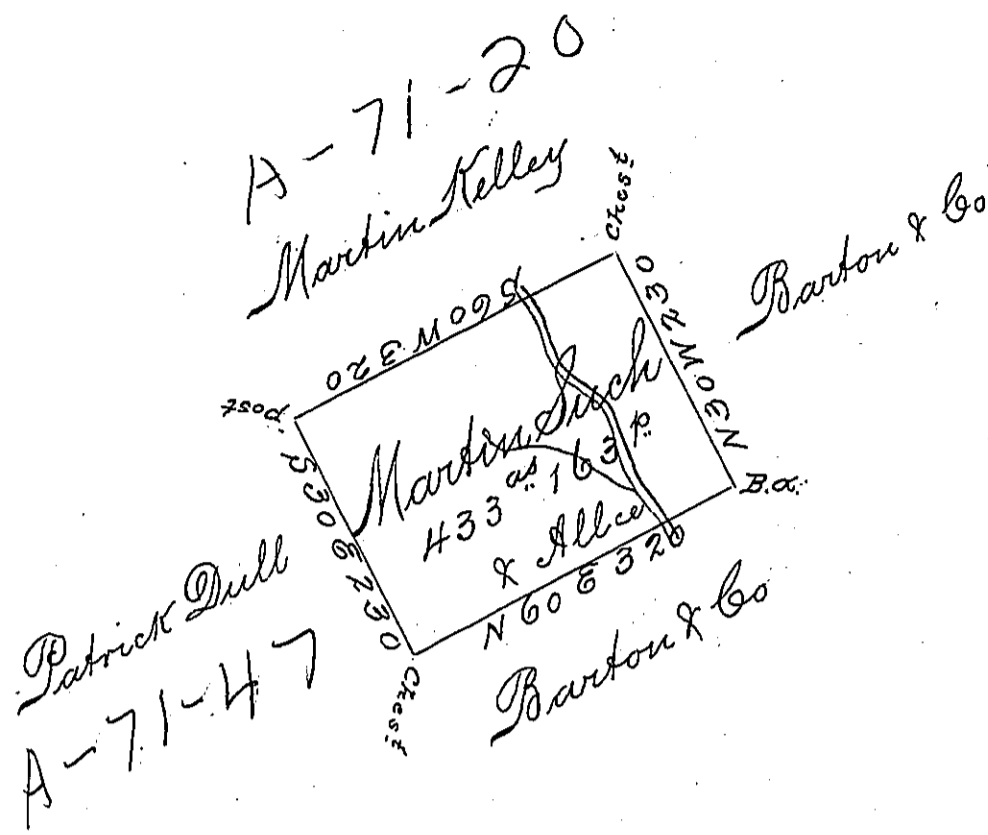 A-71-20
Martin Kelley
Chest
Barton & Co
S 60 W 320
N 30 W 230
post
Martin Such
433 as 163 p
& Allce
S 30 E 230
B.o.
N 60 E 320
Patrick Dull
A-71-47
Chest
Barton & Co